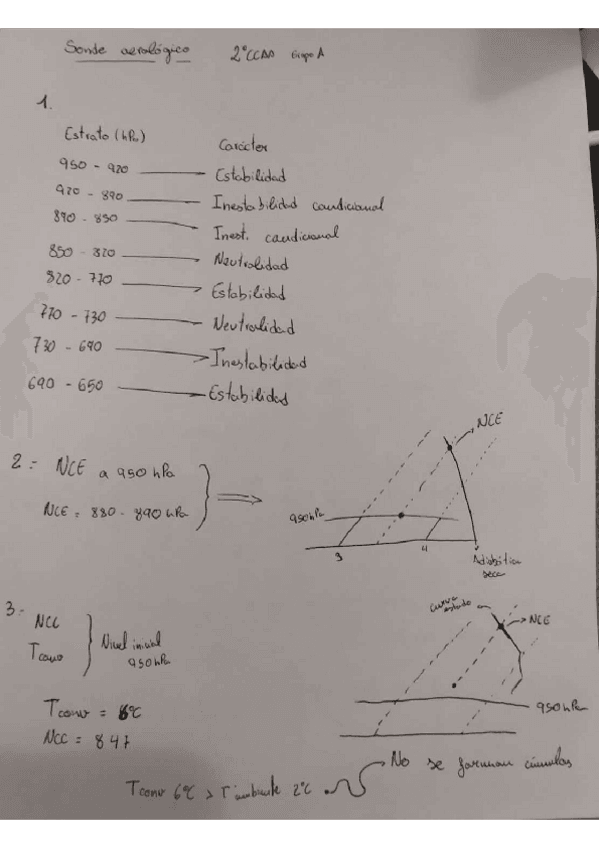 Sonde aerológico 2º CCAA Grupo A
1.
Estrato (hPa) Carácter
950 - 920 Estabilidad
920 - 890 Inestabilidad condicional
890 - 850 Inest. condicional
850 - 820 Neutralidad
820 - 770 Estabilidad
770 - 730 Neutralidad
730 - 690 Inestabilidad
690 - 650 Estabilidad
NCE
2.- NCE a 950 hPa
NCE = 880 - 890 hPa
950 hPa
3 4 Adiabática
seca
3.-
NCC
Tconv
Nivel inicial
950 hPa
Curva
estado
NCE
950 hPa
Tconv = 6ºC
NCC = 847
No se forman cúmulos
Tconv 6ºC > T ambiente 2ºC